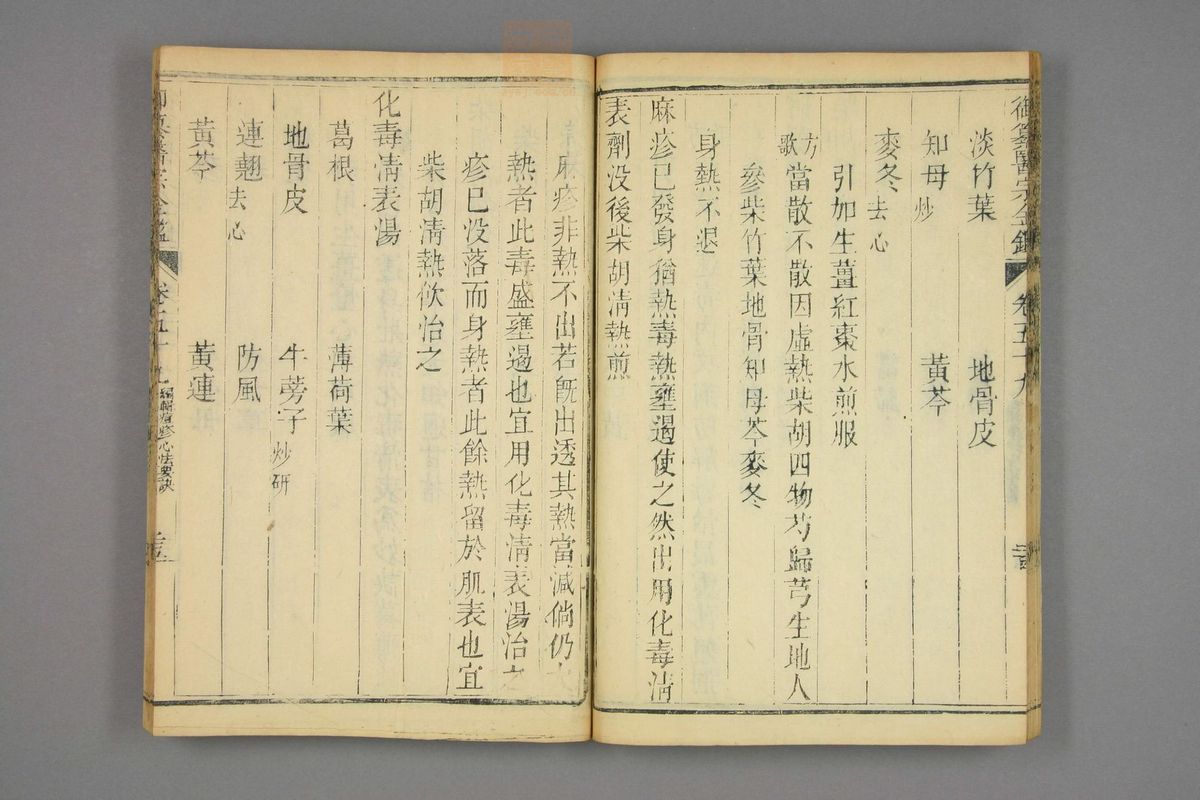 御纂醫宗金鑑 卷五十九
淡竹葉 地骨皮
知母炒 黃芩
麥冬去心
引加生薑紅棗水煎服
方歌 當散不散因虛熱柴胡四物芍歸芎生地人
參柴竹葉地骨知母芩麥冬
身熱不退
麻疹已發身猶熱毒熱壅遏使之然出用化毒清
表劑沒後柴胡清熱煎
麻疹非熱不出若既出透其熱當減倘仍大
熱者此毒盛壅遏也宜用化毒清表湯治之
疹已沒落而身熱者此餘熱留於肌表也宜
柴胡清熱飲治之
化毒清表湯
葛根 薄荷葉
地骨皮 牛蒡子炒研
連翹去心 防風
黃芩 黃連
卷五十九 編輯痘疹心法要訣